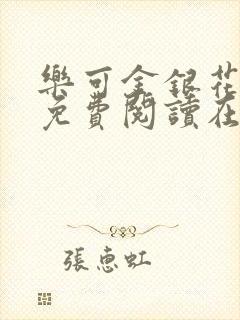 樂可金銀花
免費閱讀在
張惠虹